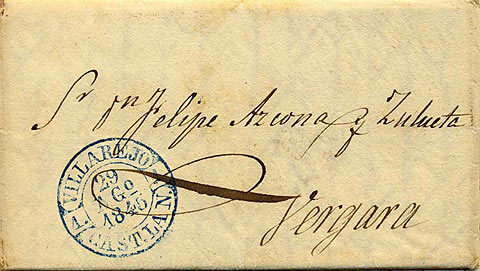 Sr Dn Felipe Azcona y Zulueta
Vergara
VILLAREJO
29
AGO
1846
CAST. LA N.